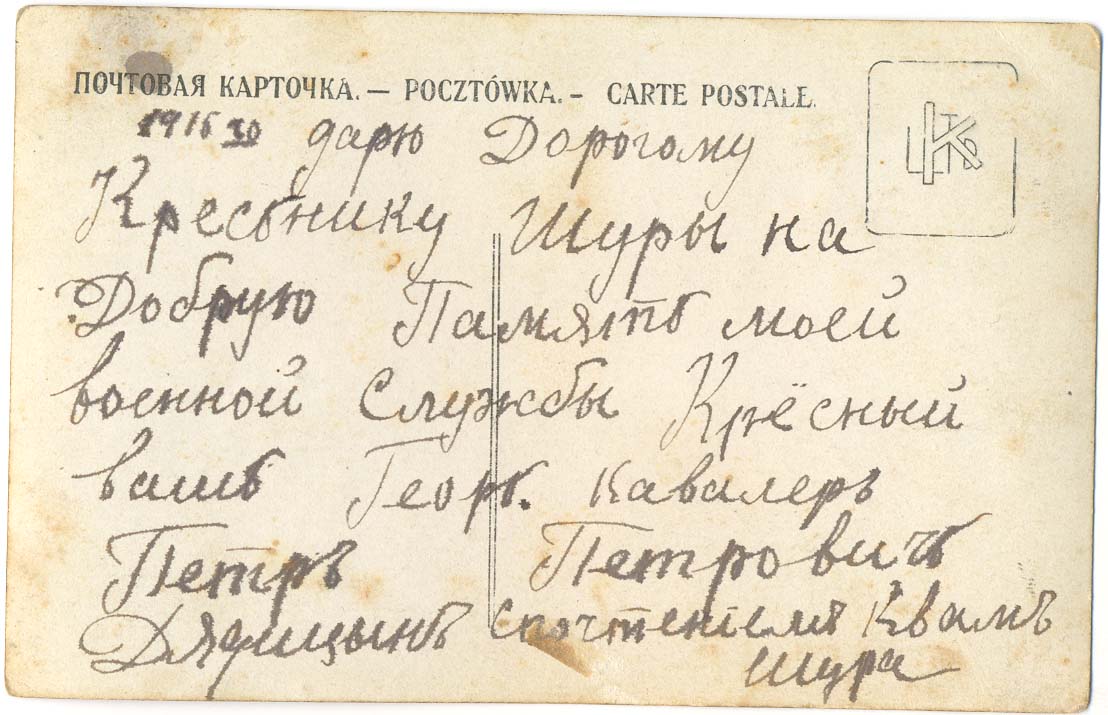 ПОЧТОВАЯ КАРТОЧКА. — POCZTÓWKA. - CARTE POSTALE.
дарю Дорогому
Кресьнику Шуры на
Добрую Память моей
военной Службы Крёсный
вашъ Геор. Кавалеръ
Петръ Петровичъ
с почтением К вамъ
Шура